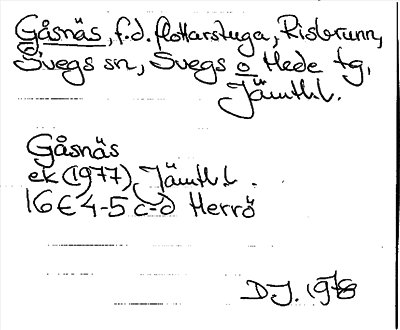 Gåsnäs, f.d. flottarstuga, Risbrunn,
Svegs sn, Svegs o Hede tg,
Jämtl.l.
Gåsnäs
ek (1977) Jämtl.l.
16E 4-5 c-d Herrö
DJ. 1978